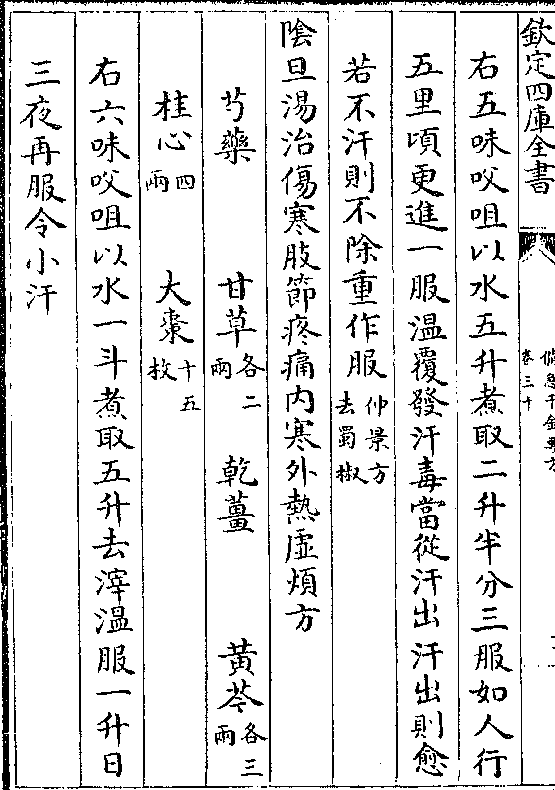 欽定四庫全書
備急千金要方
卷三十
右五味㕮咀以水五升煮取二升半分三服如人行
五里頃更進一服溫覆發汗毒當從汗出汗出則愈
若不汗則不除重作服仲景方去蜀椒
陰旦湯治傷寒肢節疼痛内寒外熱虛煩方
芍藥 甘草各二兩 乾薑 黃芩各三兩
桂心四兩 大棗十五枚
右六味㕮咀以水一斗煮取五升去滓溫服一升日
三夜再服令小汗